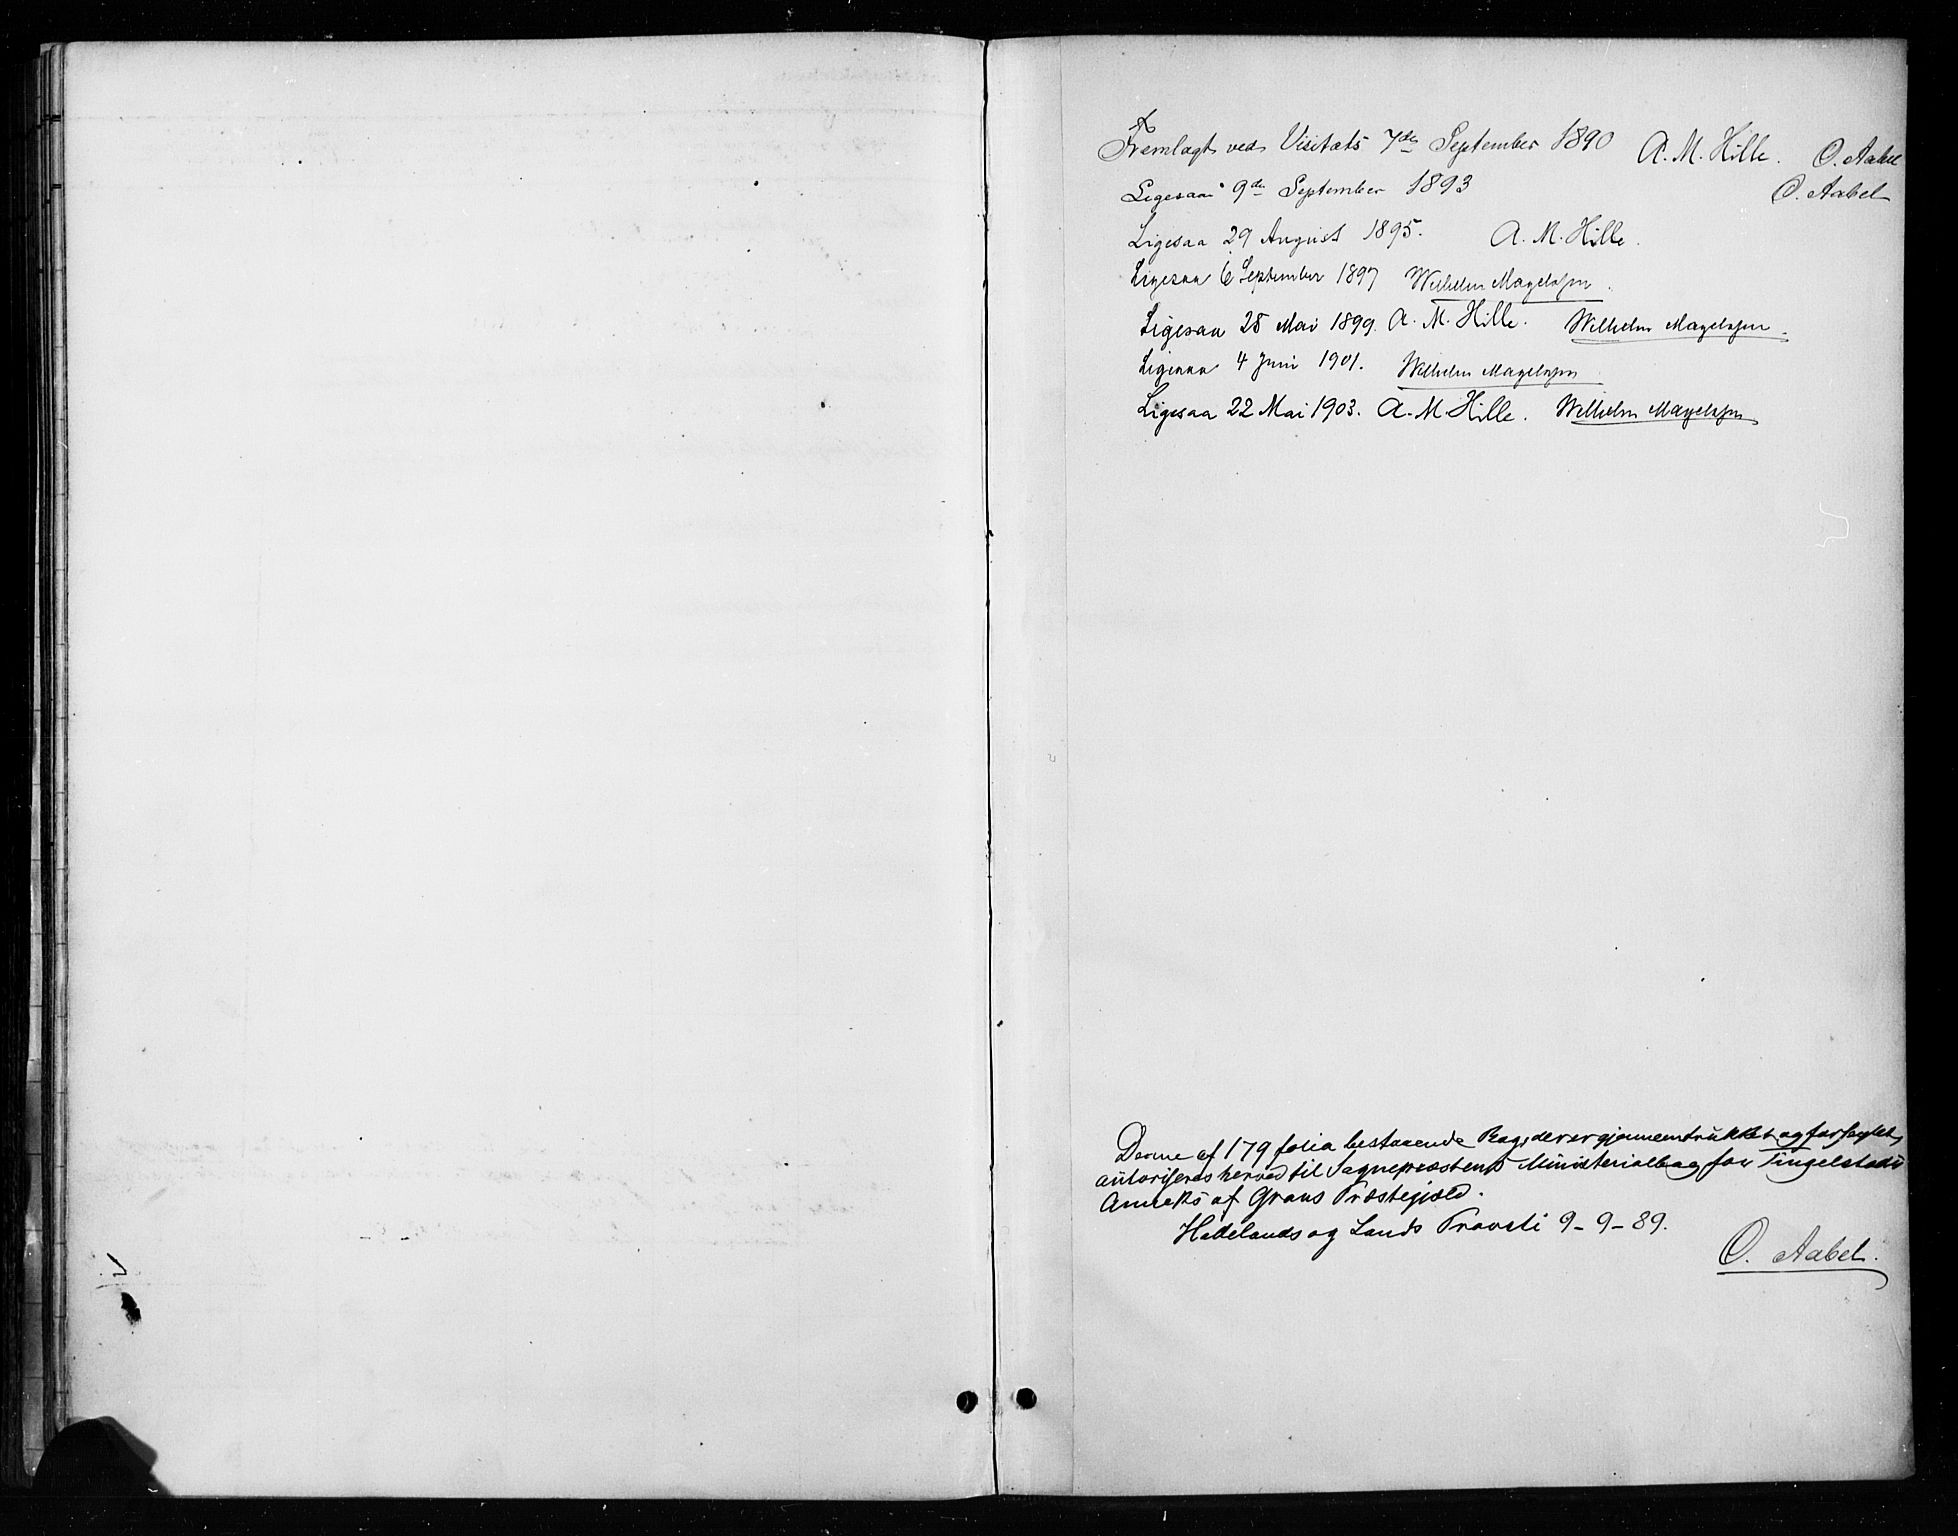 Fremlagt ved Visitats 7de September 1890 A. M. Hille. O. Aabel
Ligesaa 9de September 1893 O. Aabel
Ligesaa 29 August 1895. A. M. Hille.
Ligesaa 6 September 1897 Wilhelm Magelssen.
Ligesaa 28 Mai 1899. A. M. Hille. Wilhelm Magelssen.
Ligesaa 4 Juni 1901. Wilhelm Magelssen
Ligesaa 22 Mai 1903. A. M. Hille. Wilhelm Magelssen
Denne af 179 folia bestaaende Bog, der er gjennemtrukket og forseglet,
autoriseres herved til Sognepræstens Ministerialbog for Tingelstads
Anneks af Grans Præstegjæld.
Hadelands og Lands Provsti 9-9-89.
O. Aabel.